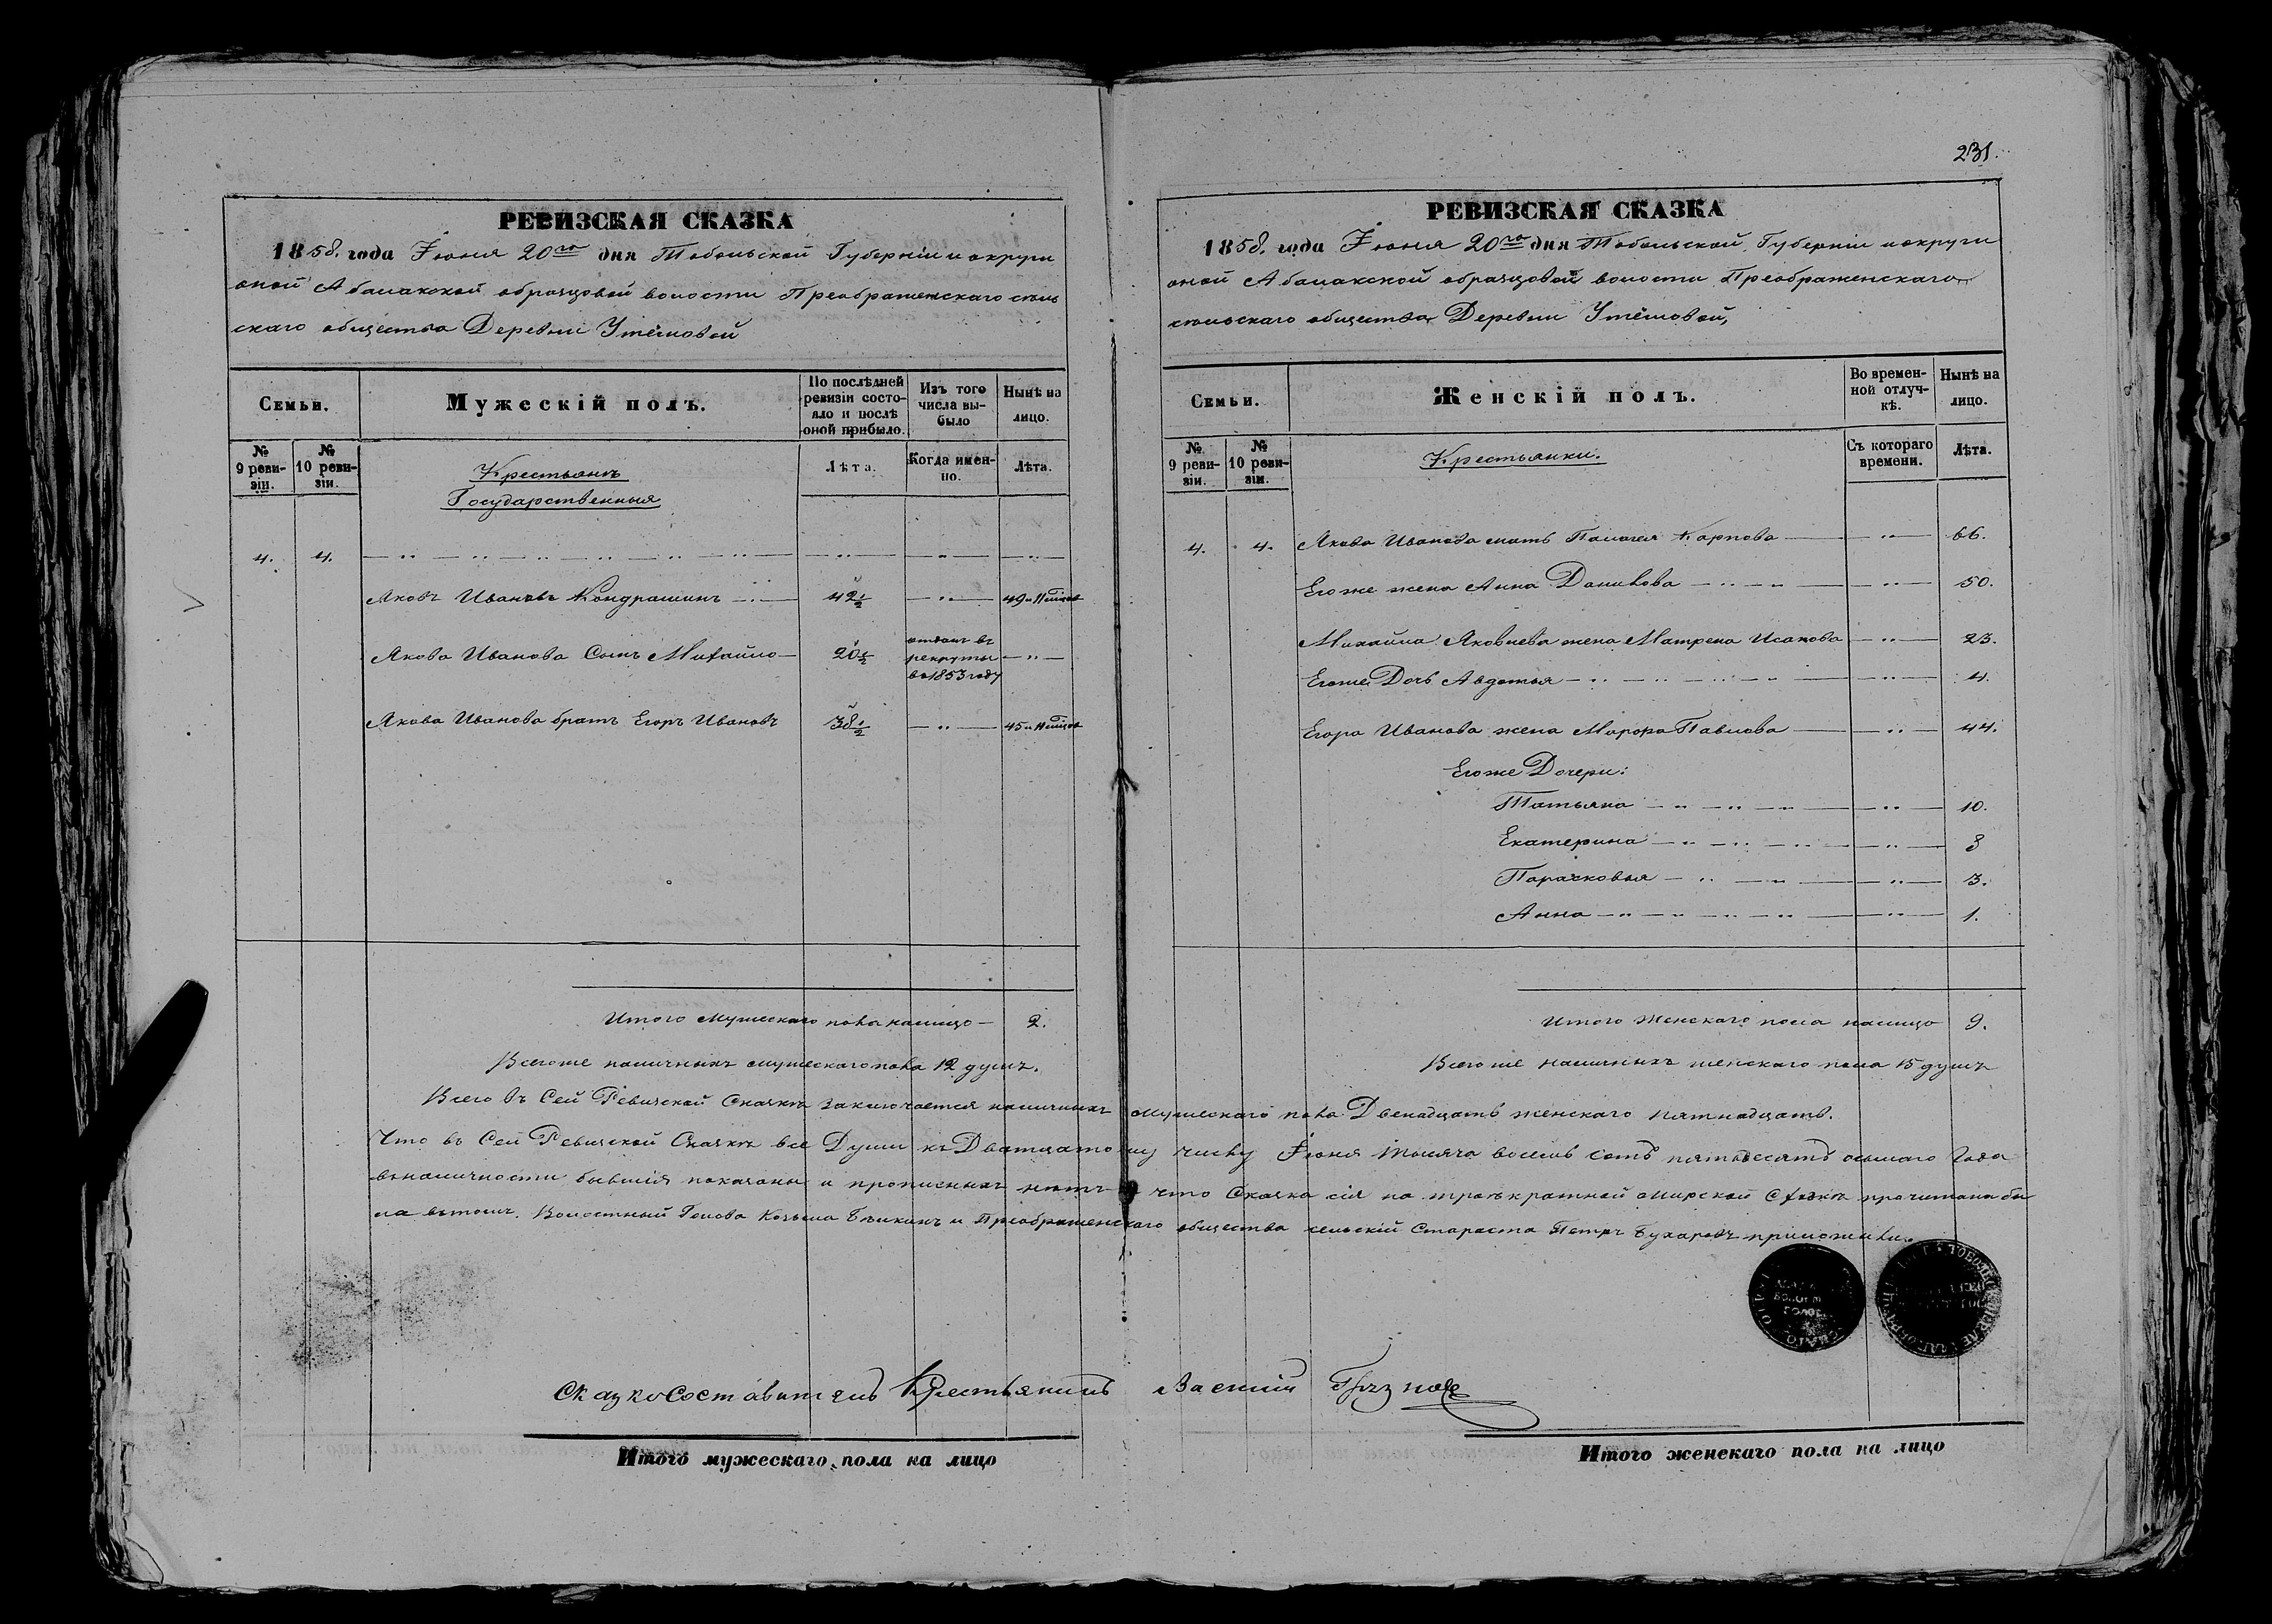 231.
РЕВИЗСКАЯ СКАЗКА
1858. года Іюня 20го дня Тобольской Губерніи и округи
оной Абалакской образцовой волости Преображенскаго сель
скаго общества Деревни Утёшовой
Семьи.
Мужескій полъ.
По послѣдней ревизіи состо-
яло и послѣ
оной прибыло.
Изъ того
числа вы-
было
Нынѣ на
лицо.
№
9 реви-
зіи.
№
10 реви-
зіи.
Крестьянъ
Государственныя
Лѣта.
Когда имен-
но.
Лѣта.
4. 4.
Яковъ Ивановъ Кондрашинъ 42 1/2 49 и 11 мѣсяц
Якова Иванова Сынъ Михайло 20 1/2 отданъ въ
рекруты
въ 1853 году
Якова Иванова братъ Егоръ Ивановъ 38 1/2 45 и 11 мѣсяц
Итого мужескаго пола налицо 2.
Всегоже наличныхъ мужескаго пола 12 душъ.
РЕВИЗСКАЯ СКАЗКА
1858. года Іюня 20го дня Тобольской Губерніи и округи
оной Абалакской образцовой волости Преображенскаго
сельскаго общества Деревни Утёшовой,
Семьи.
Женскій полъ.
Во времен-
ной отлуч-
кѣ.
Нынѣ на
лицо.
№
9 реви-
зіи.
№
10 реви-
зіи.
Крестьянки.
Съ котораго
времени.
Лѣта.
4. 4. Якова Иванова мать Палагея Карпова 66.
Его же жена Анна Данилова 50.
Михайла Яковлева жена Матрена Исакова 23.
Егоже Дочь Авдотья 4.
Егора Иванова жена Марфа Павлова 44.
Егоже Дочери:
Татьяна 10.
Екатерина 8
Парасковья 3.
Анна 1.
Итого Женскаго пола налицо 9.
Всегоже наличныхъ женскаго пола 15 душъ
Всего въ Сей Ревизской Сказкѣ заключается наличныхъ мужескаго пола Двенадцать женскаго пятнадцать.
Что въ Сей Ревизской Сказкѣ все Души къ Дватцатому числу Іюня тысяча восемь сотъ пятьдесятъ осьмаго Года
въ наличности бывшія показаны и прописныхъ нѣтъ и что Сказка сія на троекратной мирской Сходкѣ прочитана бы
ла въ томъ. Волостный Голова Козьма Быкинъ и Преображенскаго общества сельскій Староста Петръ Бухаровъ приложили.
Сказкосоставитель Крестьянинъ Василий
Итого мужескаго пола на лицо
Итого женскаго пола на лицо